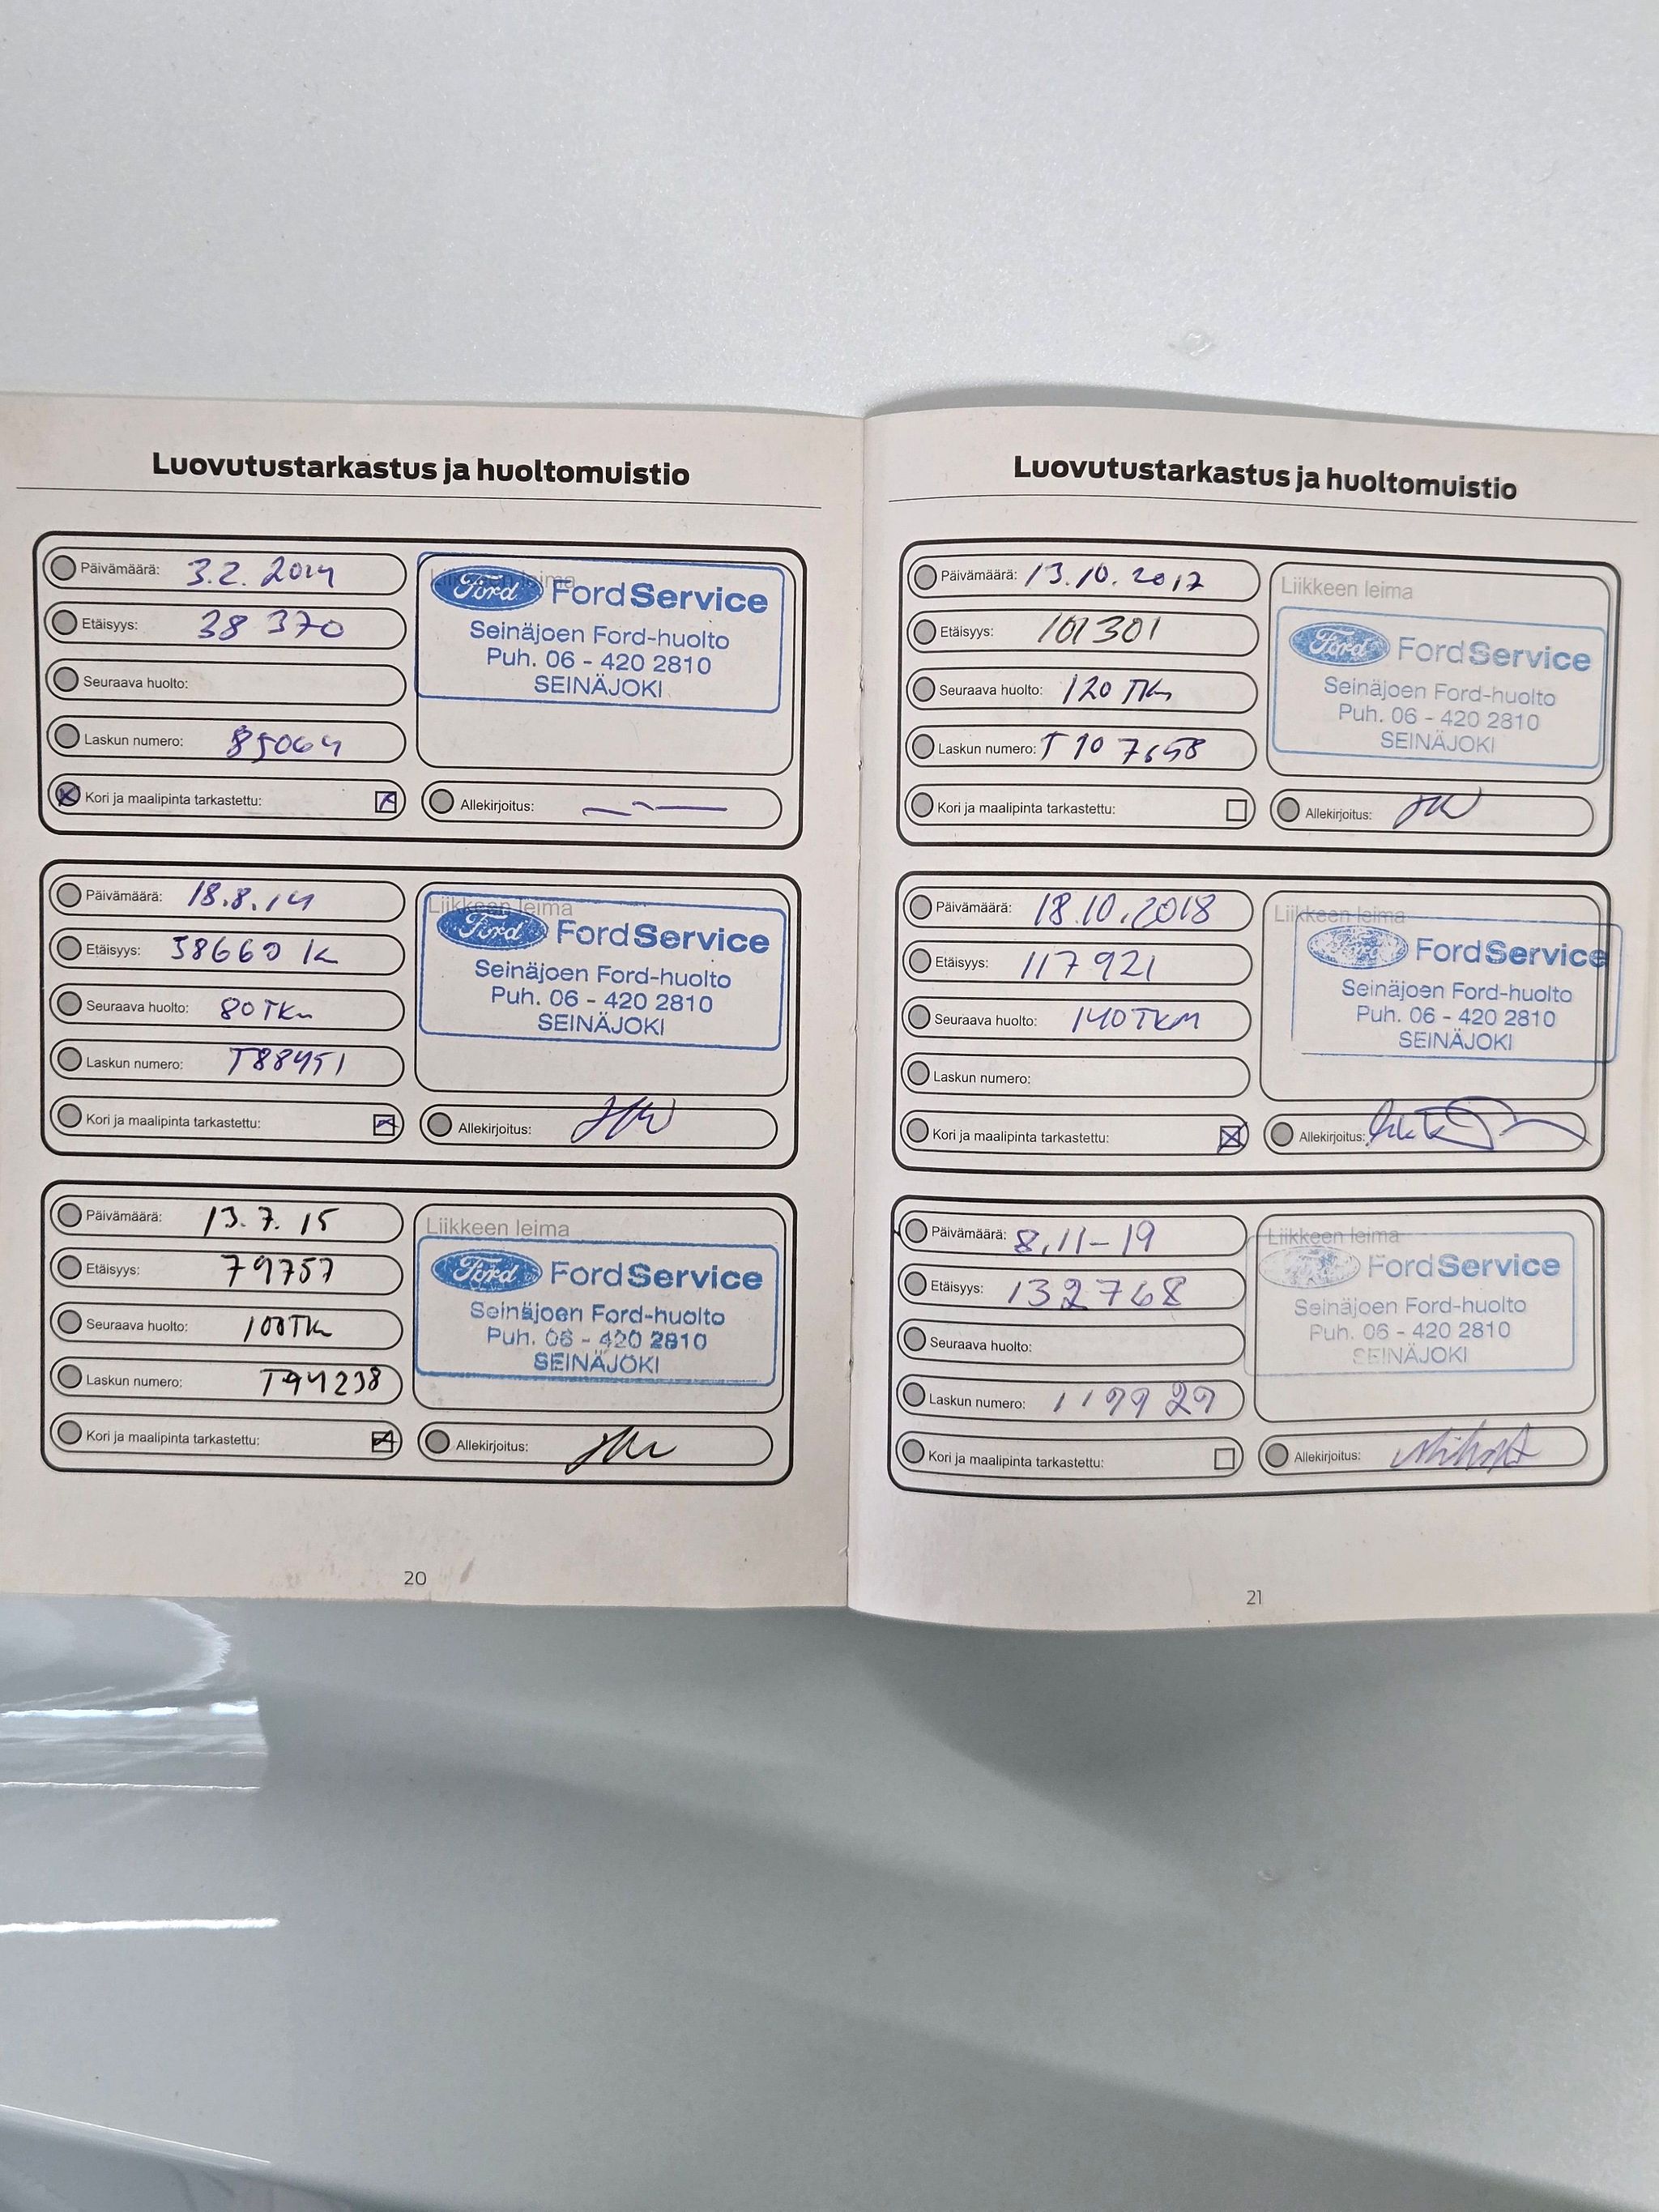 Luovutustarkastus ja huoltomuistio
Päivämäärä: 3.2. 2014
Etäisyys: 38 370
Seuraava huolto:
Laskun numero: 85064
Kori ja maalipinta tarkastettu:
Liikkeen leima
Ford FordService
Seinäjoen Ford-huolto
Puh. 06 - 420 2810
SEINÄJOKI
Allekirjoitus:
Päivämäärä: 18.8.14
Etäisyys: 58660 K
Seuraava huolto: 80 TKm
Laskun numero: T88451
Kori ja maalipinta tarkastettu:
Liikkeen leima
Ford FordService
Seinäjoen Ford-huolto
Puh. 06 - 420 2810
SEINÄJOKI
Allekirjoitus:
Päivämäärä: 13.7.15
Etäisyys: 79757
Seuraava huolto: 100TKm
Laskun numero: T94238
Kori ja maalipinta tarkastettu:
Liikkeen leima
Ford FordService
Seinäjoen Ford-huolto
Puh. 06 - 420 2810
SEINÄJOKI
Allekirjoitus:
20
Luovutustarkastus ja huoltomuistio
Päivämäärä: 13.10.2017
Etäisyys: 101301
Seuraava huolto: 120 TKm
Laskun numero: T107658
Kori ja maalipinta tarkastettu:
Liikkeen leima
Ford FordService
Seinäjoen Ford-huolto
Puh. 06 - 420 2810
SEINÄJOKI
Allekirjoitus:
Päivämäärä: 18.10.2018
Etäisyys: 117 921
Seuraava huolto: 140TKM
Laskun numero:
Kori ja maalipinta tarkastettu:
Liikkeen leima
Ford FordService
Seinäjoen Ford-huolto
Puh. 06 - 420 2810
SEINÄJOKI
Allekirjoitus:
Päivämäärä: 8.11-19
Etäisyys: 132768
Seuraava huolto:
Laskun numero: 119929
Kori ja maalipinta tarkastettu:
Liikkeen leima
FordService
Seinäjoen Ford-huolto
Puh. 06 - 420 2810
SEINÄJOKI
Allekirjoitus:
21